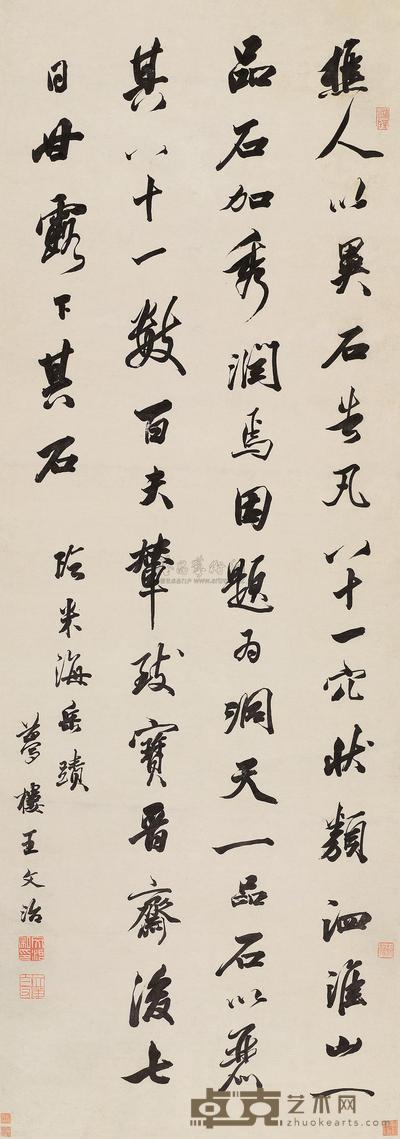 樵人以異石告凡八十一穴狀類泗淮山一
品石加秀潤焉因題為洞天一品石以麗
其八十一數百夫輦致寶晉齋後七
日甘露下其石
臨米海岳蹟
夢樓王文治
卓克艺术网
www.zhuokearts.com